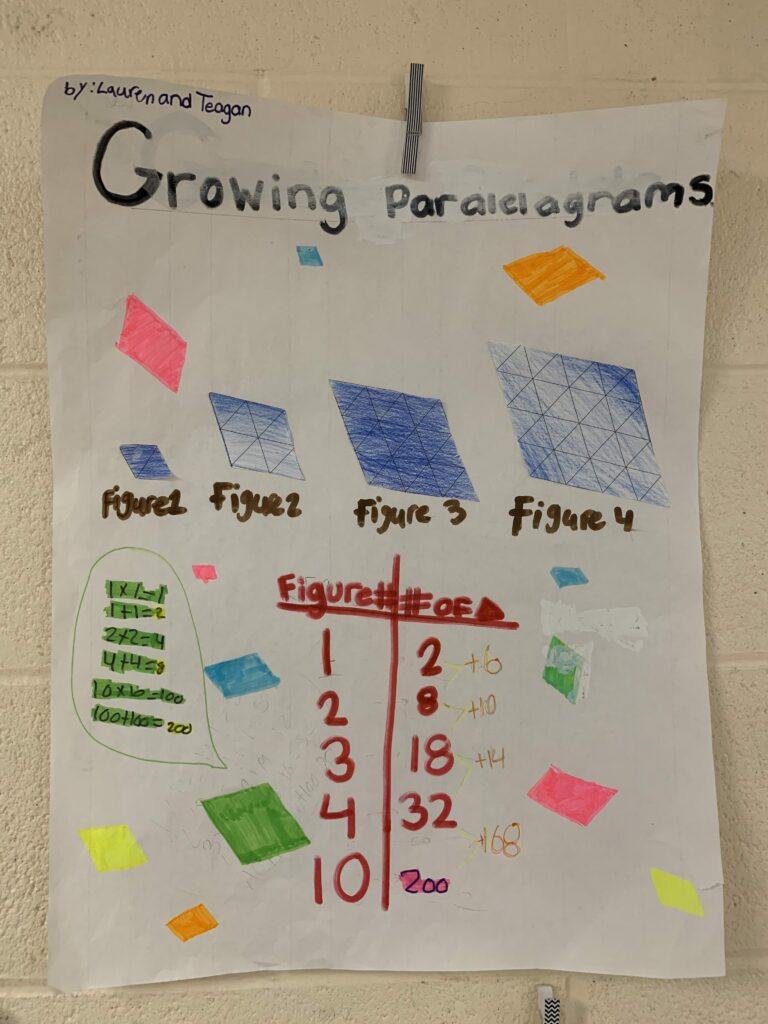 by: Lauren and Teagan
Growing Paralelagrams
Figure1
Figue2
Figure 3
Figure 4
1x1=1
1+1=2
2x2=4
4+4=8
10x10=100
100+100=200
Figure# # OF
1 2 +6
2 8 +10
3 18 +14
4 32 +168
10 200